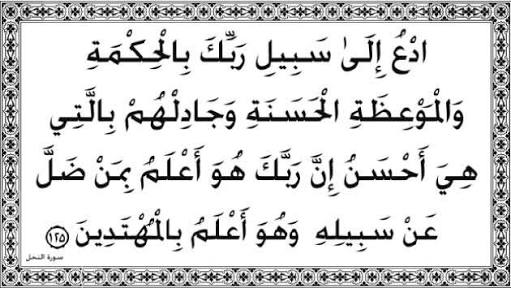 ادْعُ إِلَىٰ سَبِيلِ رَبِّكَ بِالْحِكْمَةِ
وَالْمَوْعِظَةِ الْحَسَنَةِ وَجَادِلْهُمْ بِالَّتِي
هِيَ أَحْسَنُ إِنَّ رَبَّكَ هُوَ أَعْلَمُ بِمَنْ ضَلَّ
عَنْ سَبِيلِهِ وَهُوَ أَعْلَمُ بِالْمُهْتَدِينَ ١٢٥
سورة النحل